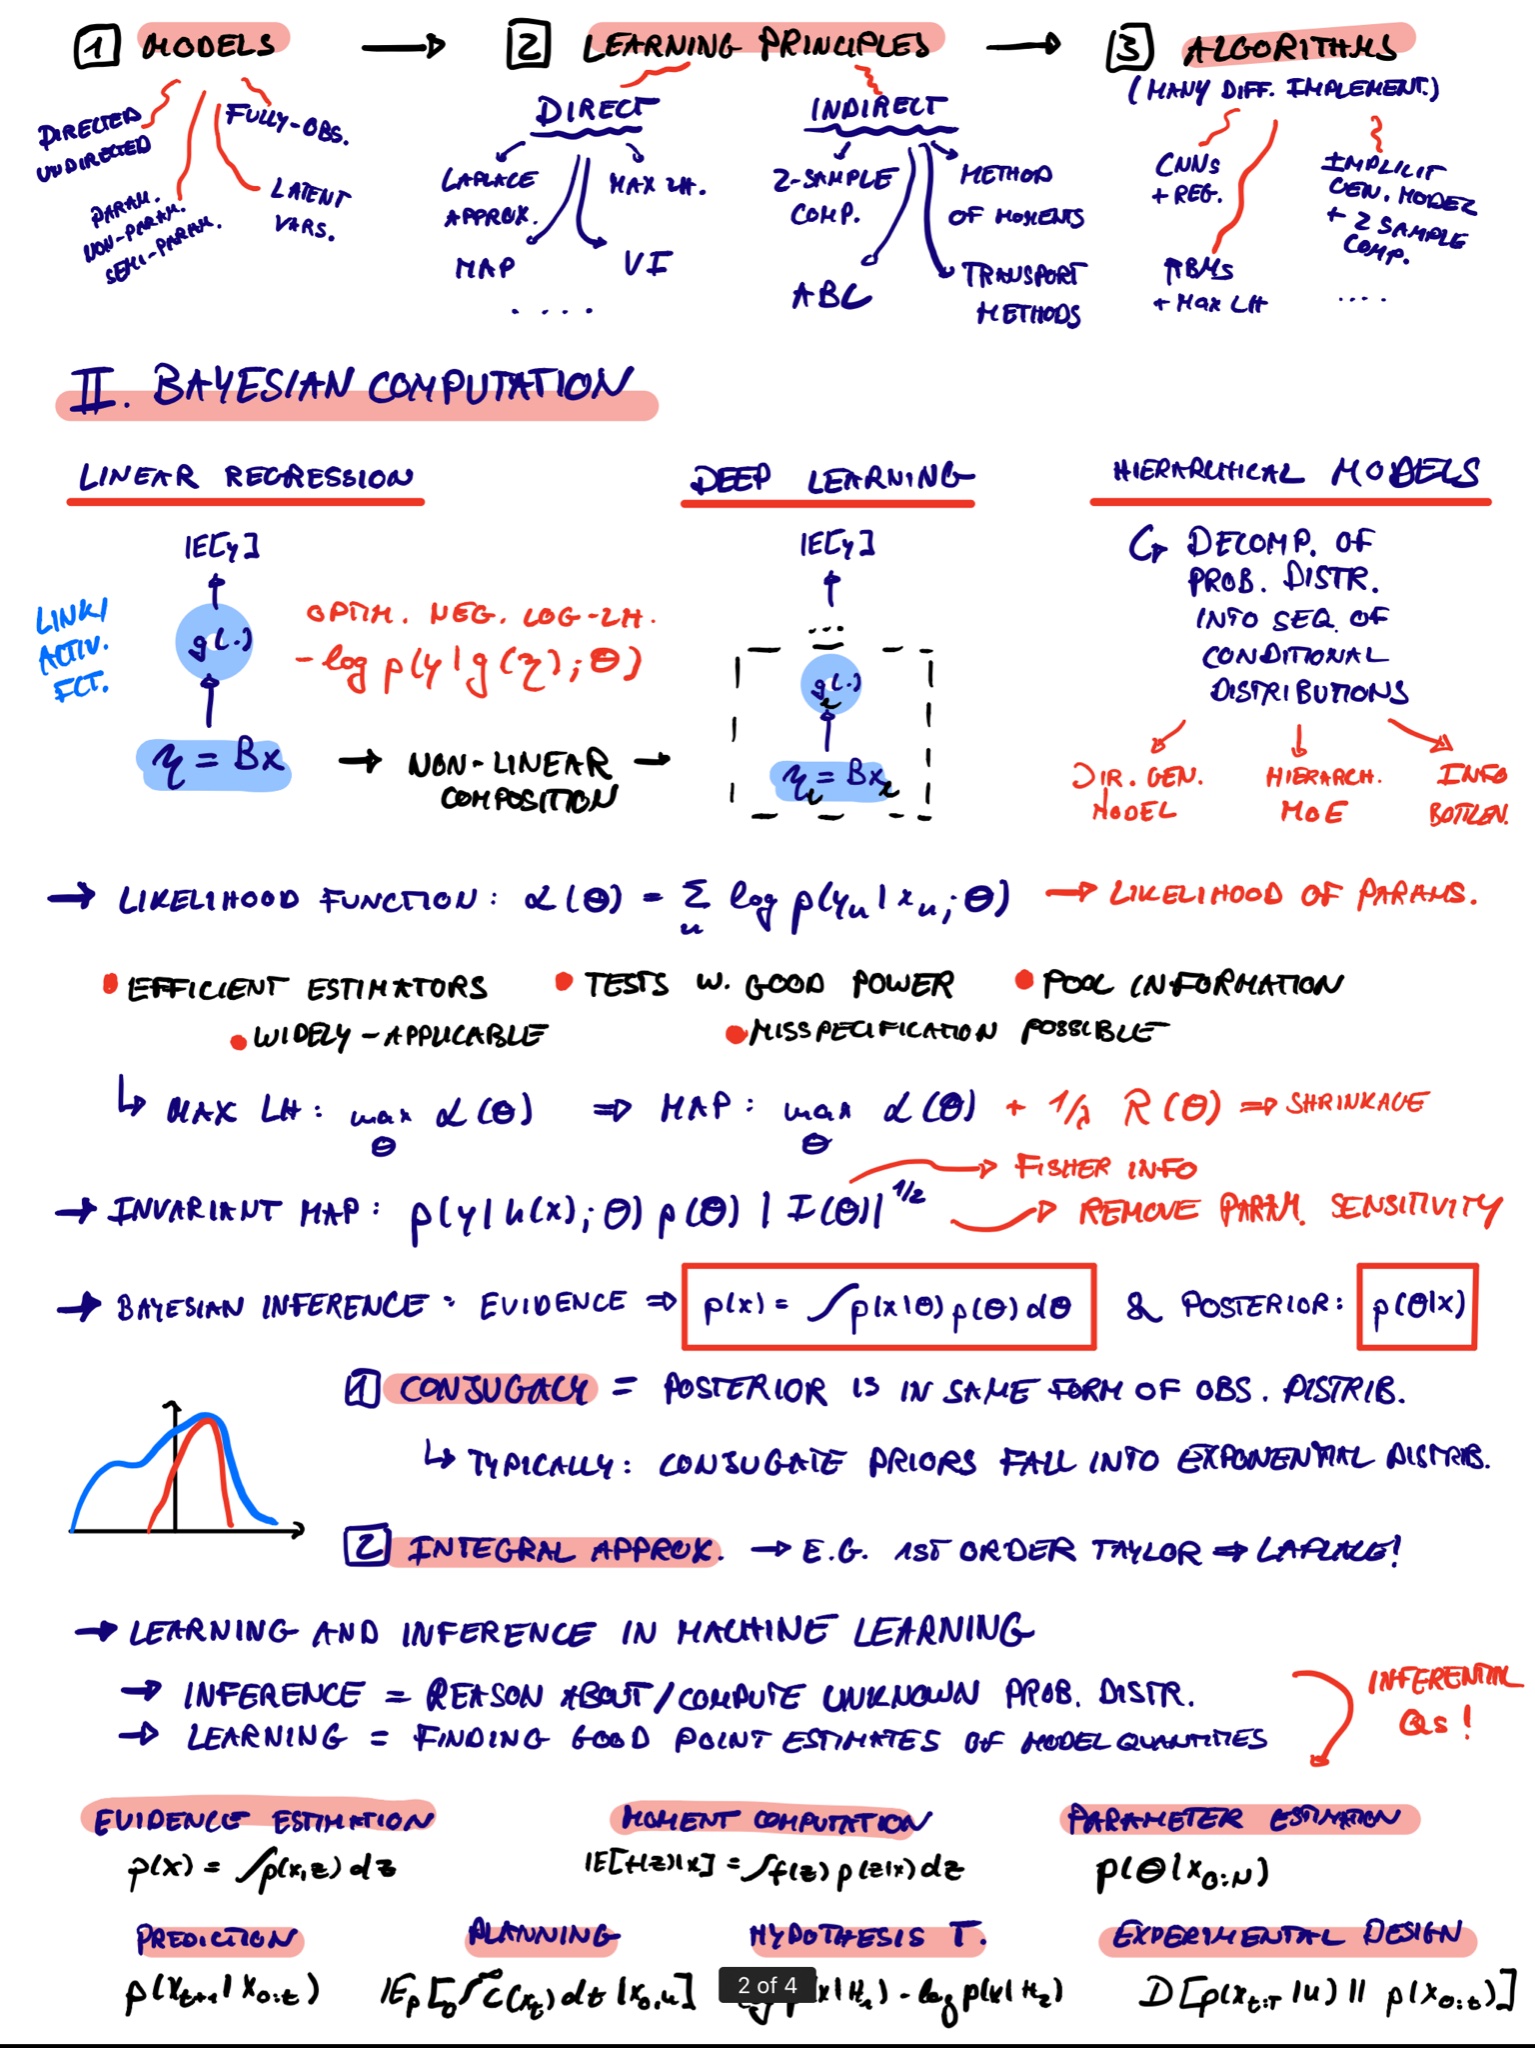 1 MODELS → 2 LEARNING PRINCIPLES → 3 ALGORITHMS
(MANY DIFF. IMPLEMENT.)
DIRECTED
UNDIRECTED
PARAM.
NON-PARAM.
SEMI-PARAM.
FULLY-OBS.
LATENT
VARS.
DIRECT
LAPLACE
APPROX.
MAP
VI
MAX LH.
....
INDIRECT
2-SAMPLE
COMP.
ABC
METHOD
OF MOMENTS
TRANSPORT
METHODS
CNNS
+ REG.
RBMS
+ MAX LH
IMPLICIT
GEN. MODEL
+ 2 SAMPLE
COMP.
....
II. BAYESIAN COMPUTATION
LINEAR REGRESSION
DEEP LEARNING
HIERARCHICAL MODELS
IE[y]
g(.)
η = Bx
LINK/
ACTIV.
FCT.
OPTIM. NEG. LOG-LH.
- log p(y | g(η); θ)
→ NON-LINEAR →
COMPOSITION
IE[y]
...
g(.)
η_l = Bx_l
↳ DECOMP. OF
PROB. DISTR.
INTO SEQ. OF
CONDITIONAL
DISTRIBUTIONS
DIR. GEN.
MODEL
HIERARCH.
MOE
INFO
BOTTLEN.
→ LIKELIHOOD FUNCTION: L(θ) = Σ_n log p(y_n | x_n; θ) → LIKELIHOOD OF PARAMS.
• EFFICIENT ESTIMATORS • TESTS W. GOOD POWER • POOL INFORMATION
• WIDELY-APPLICABLE • MISSPECIFICATION POSSIBLE
↳ MAX LH: max_θ L(θ) ⇒ MAP: max_θ L(θ) + 1/λ R(θ) ⇒ SHRINKAGE
→ FISHER INFO
→ INVARIANT MAP: p(y | h(x); θ) p(θ) | I(θ)|^1/2 → REMOVE PARAM. SENSITIVITY
→ BAYESIAN INFERENCE: EVIDENCE ⇒ p(x) = ∫p(x|θ) p(θ) dθ & POSTERIOR: p(θ|x)
1 CONJUGACY = POSTERIOR IS IN SAME FORM OF OBS. DISTRIB.
↳ TYPICALLY: CONJUGATE PRIORS FALL INTO EXPONENTIAL DISTRIB.
2 INTEGRAL APPROX. → E.G. 1ST ORDER TAYLOR ⇒ LAPLACE!
→ LEARNING AND INFERENCE IN MACHINE LEARNING
→ INFERENCE = REASON ABOUT/COMPUTE UNKNOWN PROB. DISTR.
→ LEARNING = FINDING GOOD POINT ESTIMATES OF MODEL QUANTITIES
INFERENTIAL
Qs!
EVIDENCE ESTIMATION
p(x) = ∫p(x,z) dz
MOMENT COMPUTATION
IE[f(z)|x] = ∫f(z) p(z|x) dz
PARAMETER ESTIMATION
p(θ|x_0:N)
PREDICTION
p(x_t+1 | x_0:t)
PLANNING
IE_p[∫_0^∞ C(x_t) dt | x_0, u]
HYPOTHESIS T.
p(x|H_1) - log p(x|H_2)
EXPERIMENTAL DESIGN
D[p(x_t:T | u) || p(x_0:t)]
2 of 4